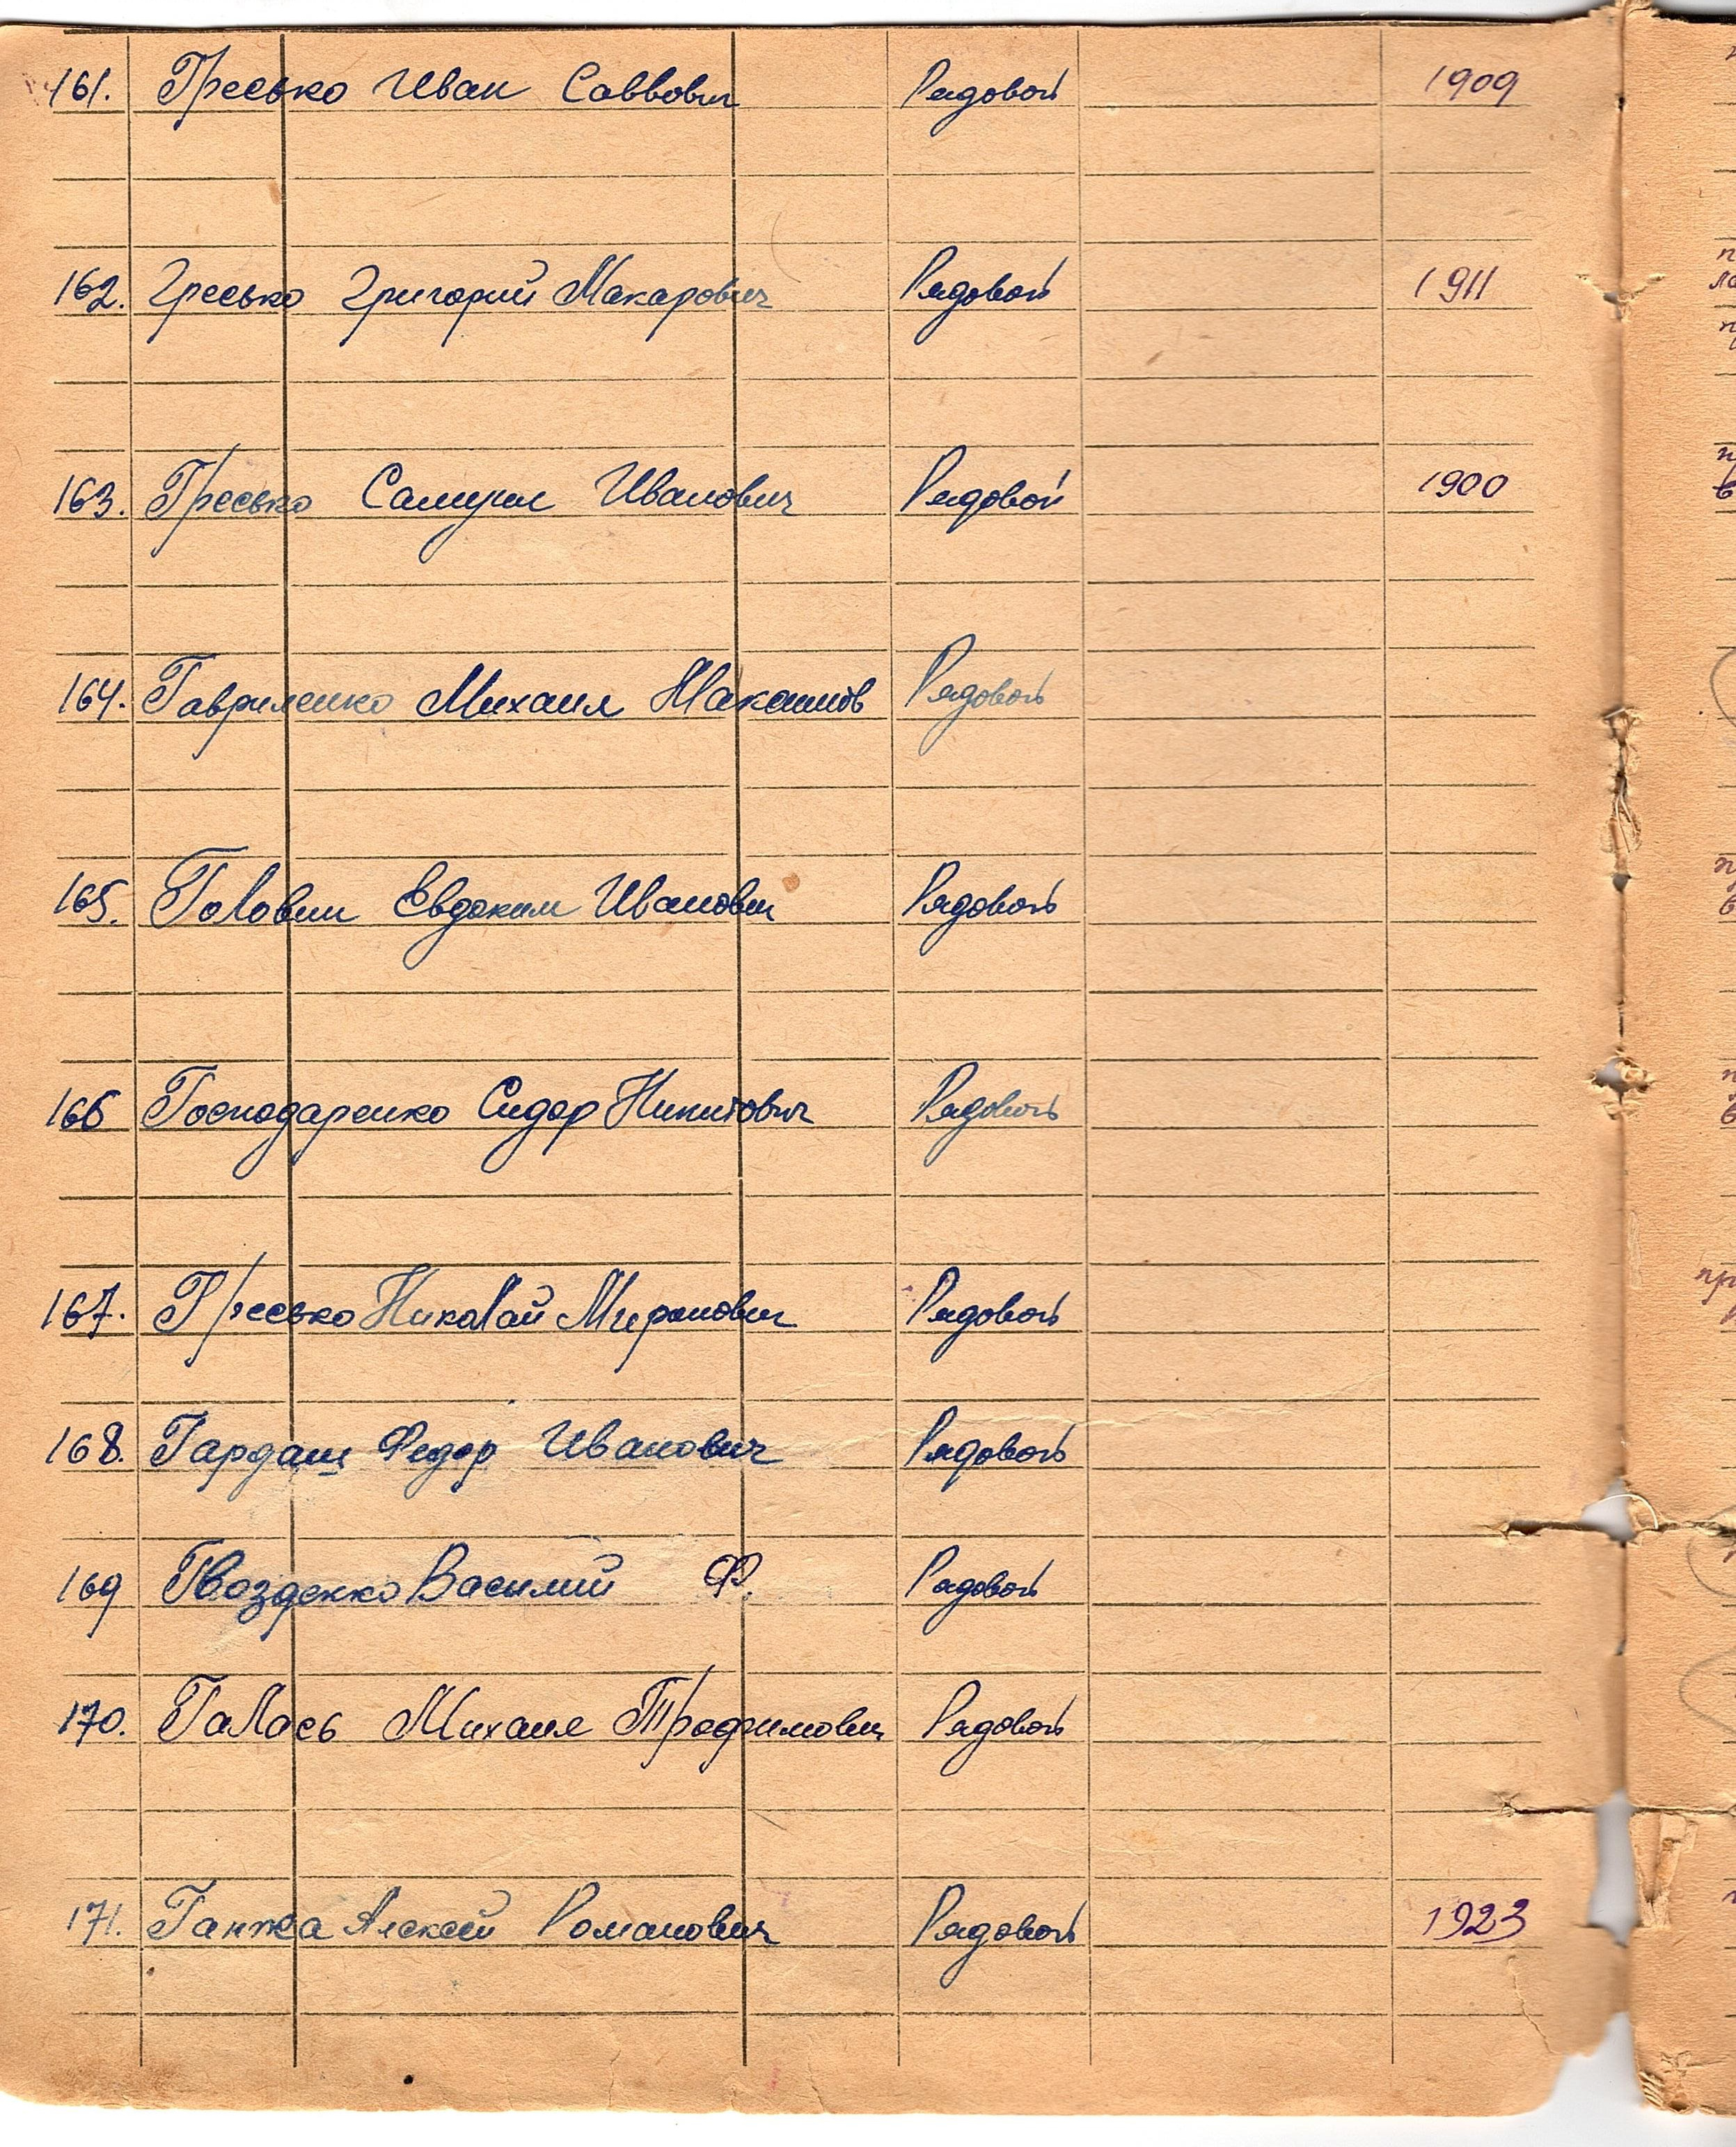 161. Гресько Иван Саввович Рядовой 1909
162. Гресько Григорий Макарович Рядовой 1911
163. Гресько Самуил Иванович Рядовой 1900
164. Гавриленко Михаил Рядовой
165. Головин Евдоким Иванович Рядовой
166 Господаренко Сидор Никитович Рядовой
167. Гресько Николай Миронович Рядовой
168. Гардаш Федор Иванович Рядовой
169 Гвозденко Василий Ф. Рядовой
170. Галась Михаил Трофимович Рядовой
171. Ганжа Алексей Романович Рядовой 1923